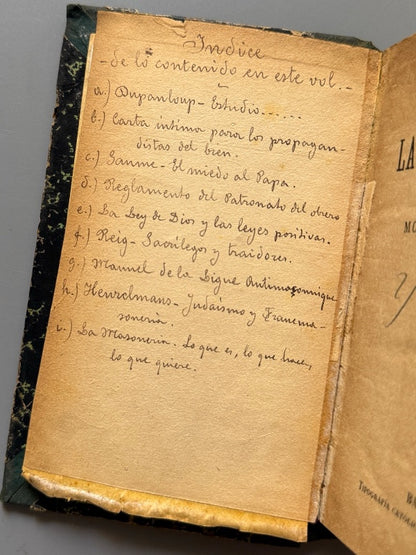 Indice
- de lo contenido en este vol. -
a.) Dupanloup - Estudio......
b.) Carta íntima para los propagan-
distas del bien.
c.) Gaume - El miedo al Papa.
d.) Reglamento del Patronato del obrero
e.) La Ley de Dios y las leyes positivas.
f.) Reig - Sacrílegos y traidores.
g.) Manuel de la Ligue Antimaçonnique
h.) Henrclmans - Judaísmo y Franma-
sonería.
i.) La Masonería. Lo que es, lo que hace,
lo que quiere.
LA
TIPOGRAFÍA CATÓLICA